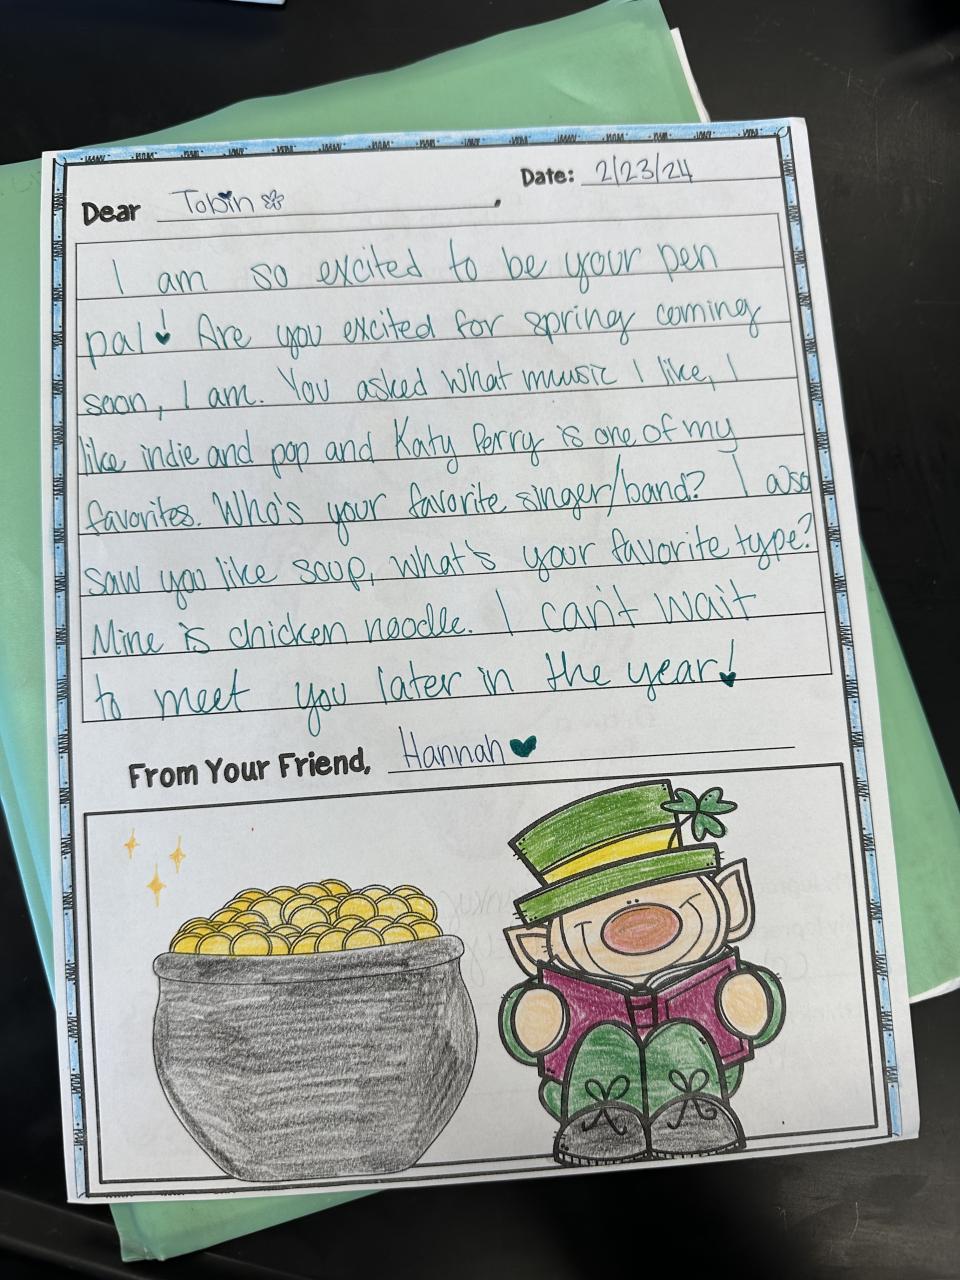 Date: 2/23/24
Dear Tobin,
I am so excited to be your pen
pal! Are you excited for spring coming
soon, I am. You asked what music I like, I
like indie and pop and Katy Perry is one of my
favorites. Who's your favorite singer/band? I also
saw you like soup, what's your favorite type?
Mine is chicken noodle. I can't wait
to meet you later in the year!
From Your Friend, Hannah